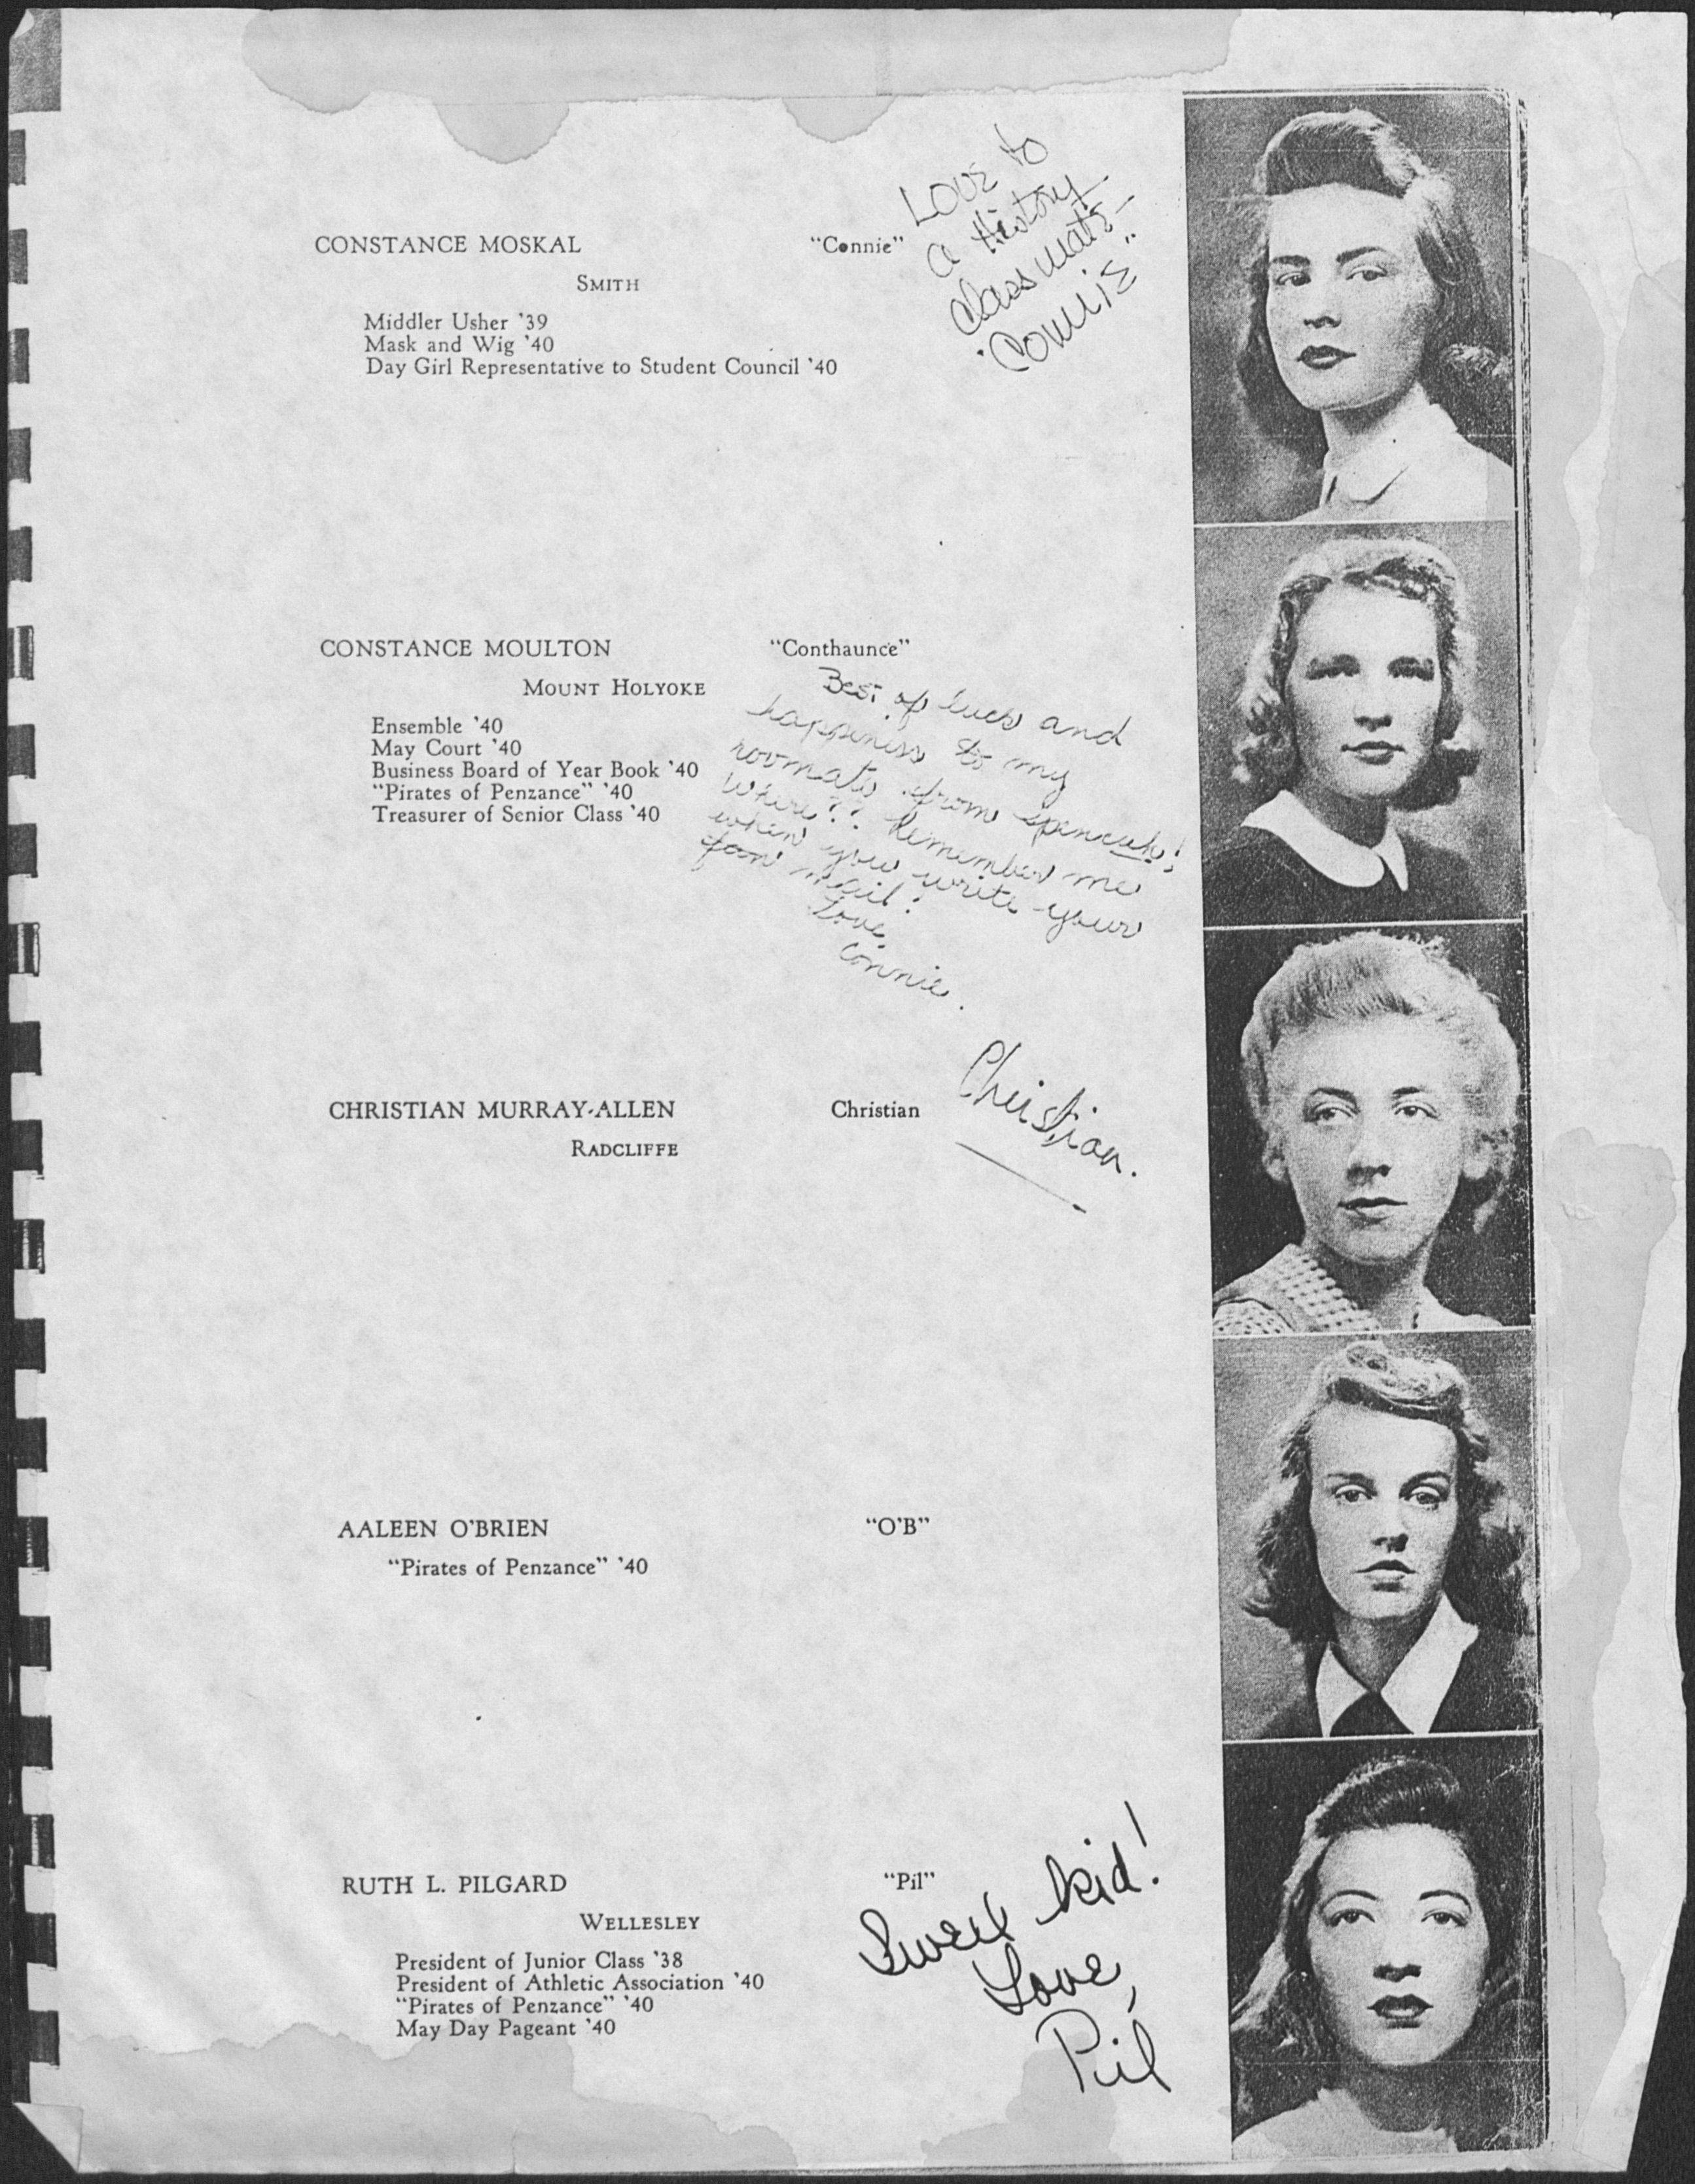 CONSTANCE MOSKAL "Connie"
SMITH
Middler Usher '39
Mask and Wig '40
Day Girl Representative to Student Council '40
Love to
a History
classmate—
"Connie"
CONSTANCE MOULTON "Conthaunce"
MOUNT HOLYOKE
Ensemble '40
May Court '40
Business Board of Year Book '40
"Pirates of Penzance" '40
Treasurer of Senior Class '40
Best of luck and
happiness to my
roomate from
where?? Remember me
when you write your
fan mail!
Love,
Connie.
CHRISTIAN MURRAY-ALLEN Christian
RADCLIFFE
Christian.
AALEEN O'BRIEN "O'B"
"Pirates of Penzance" '40
RUTH L. PILGARD "Pil"
WELLESLEY
President of Junior Class '38
President of Athletic Association '40
"Pirates of Penzance" '40
May Day Pageant '40
kid!
Love,
Pil